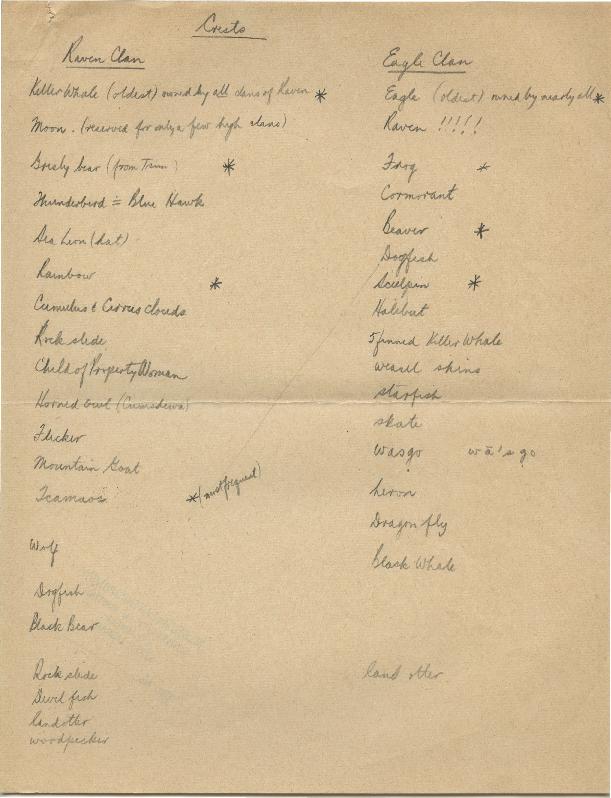 Crests
Raven Clan
Killer Whale (oldest) owned by all clans of Raven *
Moon. (reserved for only a few high clans)
Grisly bear (from Tsim.) *
Thunderbird = Blue Hawk
Sea Leon (hat)
Rainbow *
Cumulus & Cirrus clouds
Rock slide
Child of Property Woman
Horned Owl (Cumsdewa)
Flicker
Mountain Goat
Tcamaos *(most frequent)
Wolf
Dogfish
Black Bear
Rock slide
Devil fish
land otter
woodpecker
Eagle Clan
Eagle (oldest) owned by nearly all *
Raven !!!!!
Frog *
Cormorant
Beaver *
Dogfish
Sculpin *
Halibut
5 finned Killer Whale
weasel skins
starfish
skate
wasgo wā's go
heron
Dragon fly
Black Whale
land otter